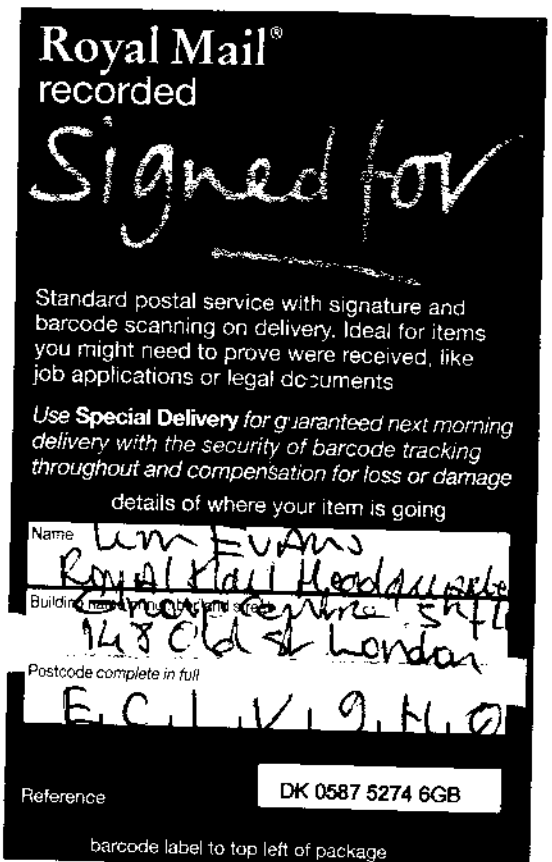 Royal Mail®
recorded
Signed for
Standard postal service with signature and
barcode scanning on delivery. Ideal for items
you might need to prove were received, like
job applications or legal documents
Use Special Delivery for guaranteed next morning
delivery with the security of barcode tracking
throughout and compensation for loss or damage
details of where your item is going
Name EVANS
Royal Mail
Building name or number and street
148 Old St London
Postcode complete in full
E C 1 V 9 H Q
Reference DK 0587 5274 6GB
barcode label to top left of package